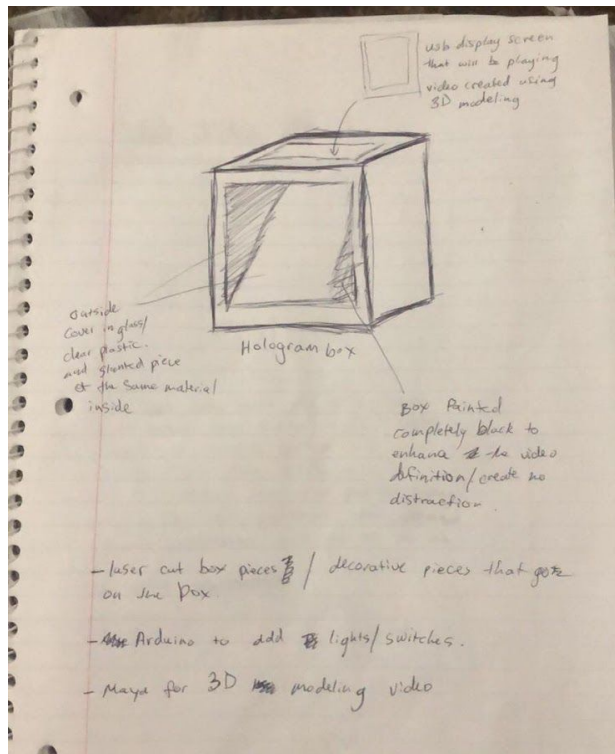 usb display screen
that will be playing
video created using
3D modeling
outside
cover in glass/
clear plastic.
and slanted piece
of the same material
inside
Hologram box
Box Painted
completely black to
enhance the video
definition/create no
distraction.
- laser cut box pieces / decorative pieces that
on the box
- Arduino to add lights/switches.
- Maya for 3D modeling video